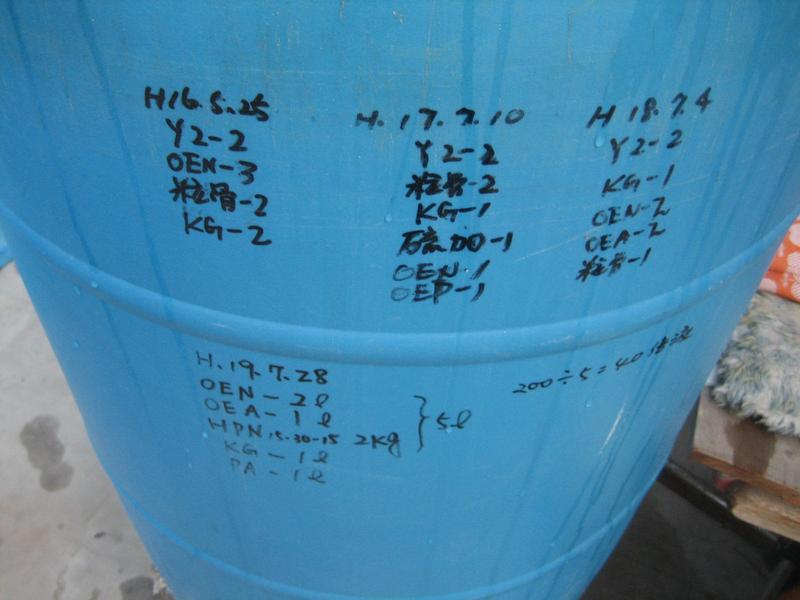 H16.5.25
Y2-2
OEN-3
粒骨-2
KG-2
H.17.7.10
Y2-2
粒骨-2
KG-1
硫加-1
OEN-1
OEP-1
H 18.7.4
Y2-2
KG-1
OEN-2
OEA-2
粒骨-1
H.19.7.28
OEN-2ℓ
OEA-1ℓ
HPN 15-30-15 2Kg
KG-1ℓ
PA-1ℓ
}5ℓ
200÷5=40倍液